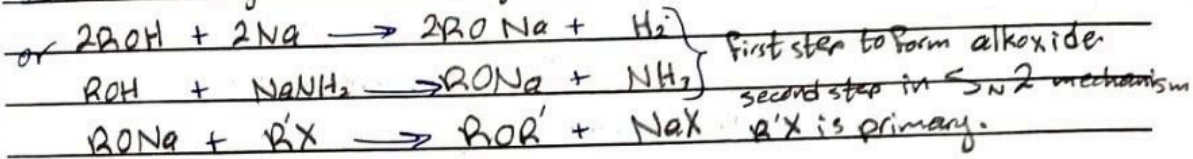 or 2ROH + 2Na → 2RO Na + H₂ } first step to form alkoxide.
ROH + NaNH₂ → RONa + NH₃ second step in SN2 mechanism
RONa + R'X → ROR' + NaX R'X is primary.